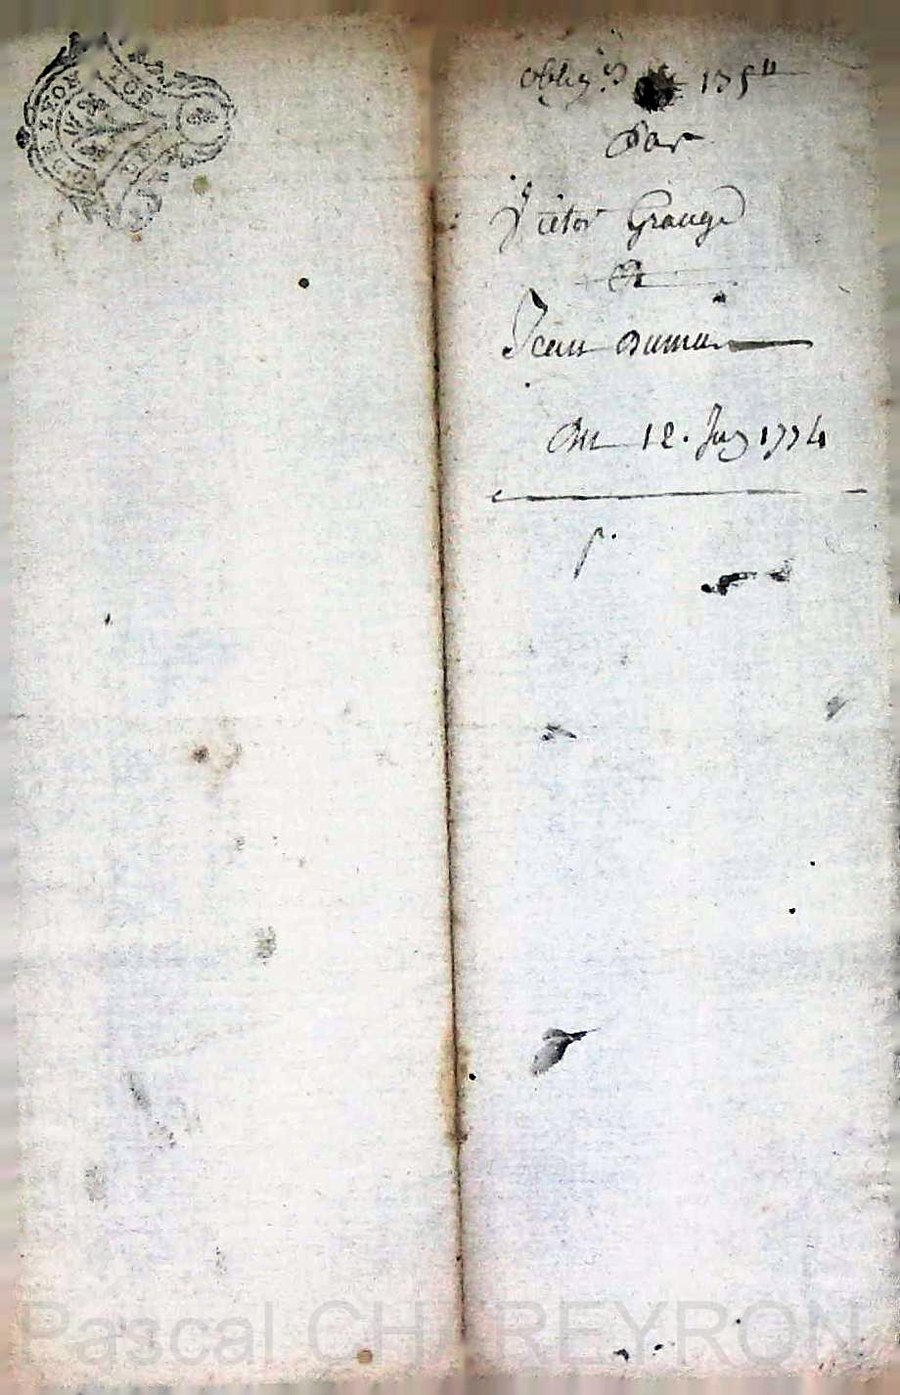 oblig.on 175#
Par
Victor Grange
A
Jean Dumas
Du 12. Juy 1774
Pascal CHAREYRON